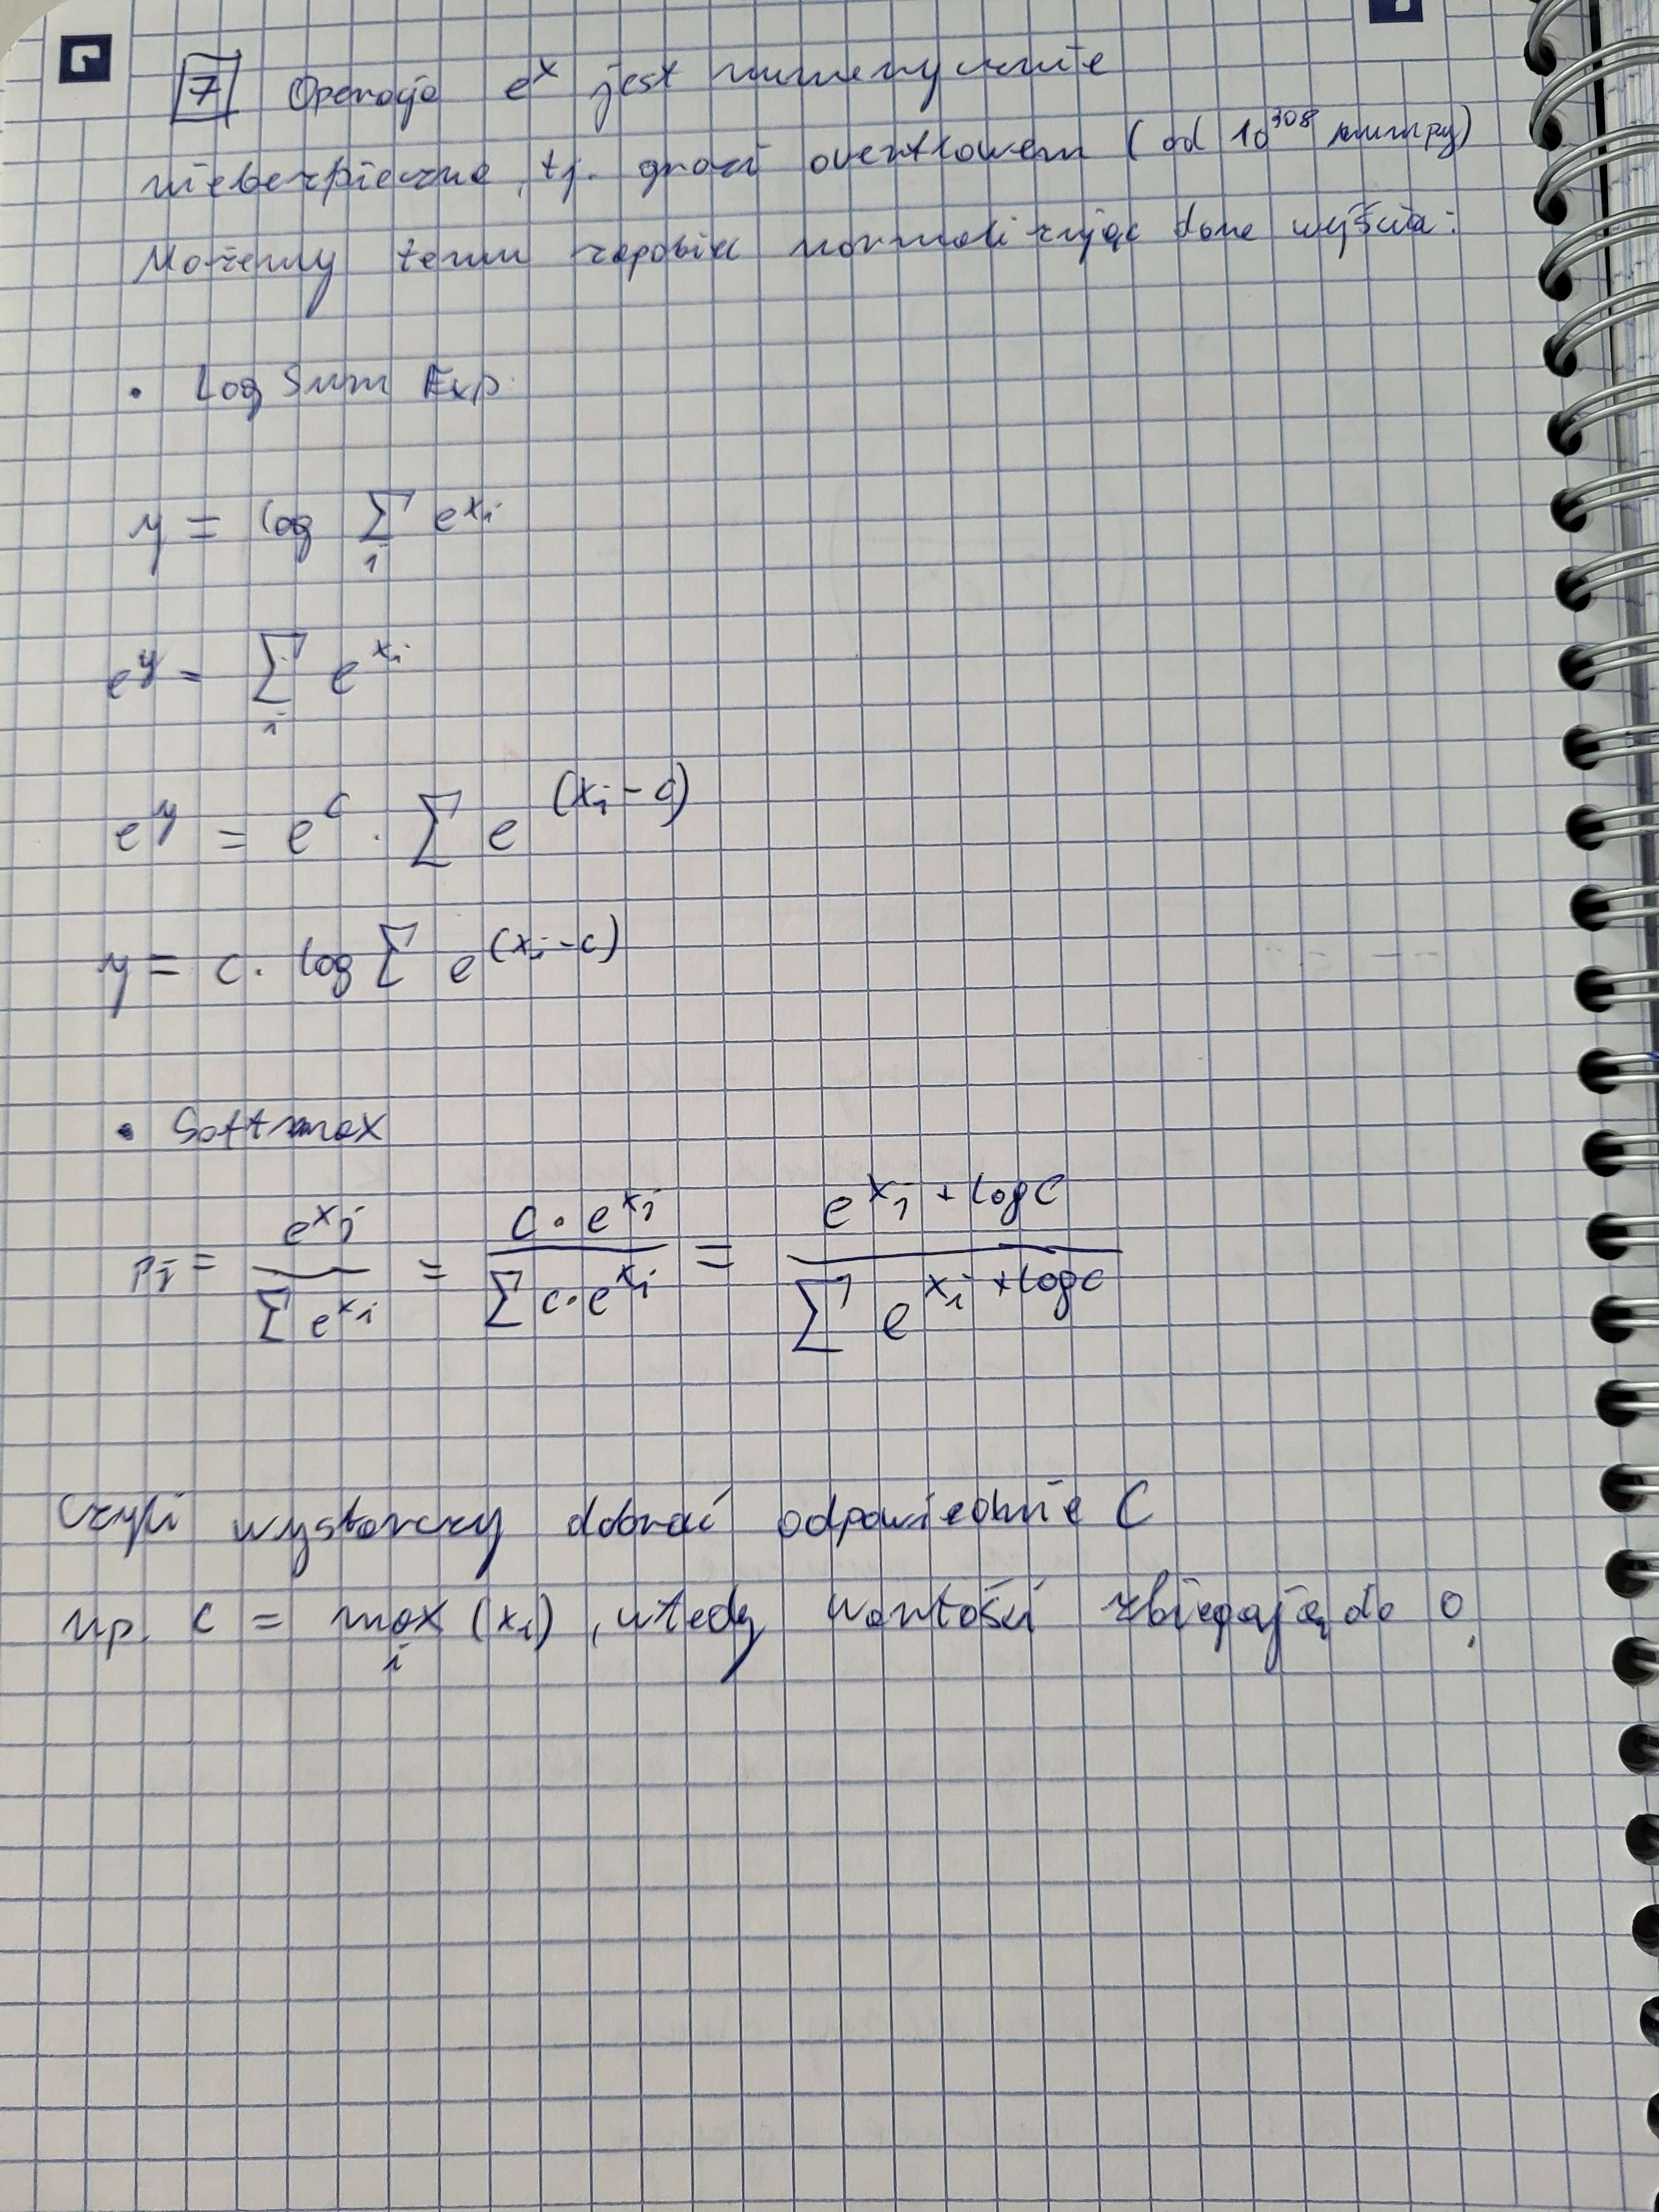 7 Operacja e^x jest numerycznie
niebezpieczna, tj. grozi overflowem (od 10^308 numpy)
Możemy temu zapobiec normalizując dane wejścia:
• Log Sum Exp.
y = log ∑_i e^{x_i}
e^y = ∑_i e^{x_i}
e^y = e^c · ∑ e^{(x_i - c)}
y = c · log ∑ e^{(x_i - c)}
• Softmax
p_j = e^{x_j} / ∑ e^{x_i} = c · e^{x_j} / ∑ c · e^{x_i} = e^{x_j + log c} / ∑ e^{x_i + log c}
Czyli wystarczy dobrać odpowiednie C
np. c = max_i (x_i), wtedy wartości zbiegają do 0.